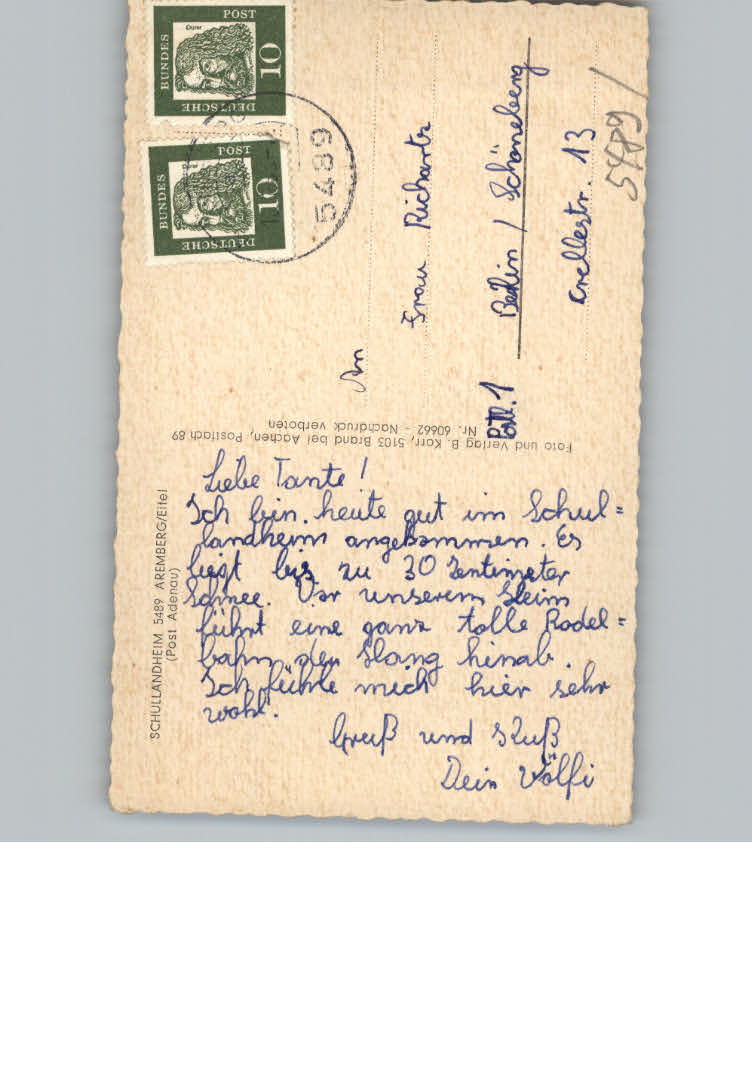 Liebe Tante!
Ich bin heute gut im Schul=
landheim angekommen. Es
liegt bis zu 30 Zentimeter
Schnee. Vor unserem Heim
führt eine ganz tolle Rodel=
bahn den Hang hinab.
Ich fühle mich hier sehr
wohl.
Gruß und Kuß
Dein Wölfi
SCHULLANDHEIM 5489 AREMBERG/Eifel
(Post Adenau)
Foto und Verlag B. Korr, 5103 Brand bei Aachen, Postfach 89
Nr. 60662 - Nachdruck verboten
An
Frau Richartz
1 Berlin / Schöneberg
Crellestr. 13
5489
5489
DEUTSCHE
BUNDES
POST
10
Dürer
DEUTSCHE
BUNDES
POST
10